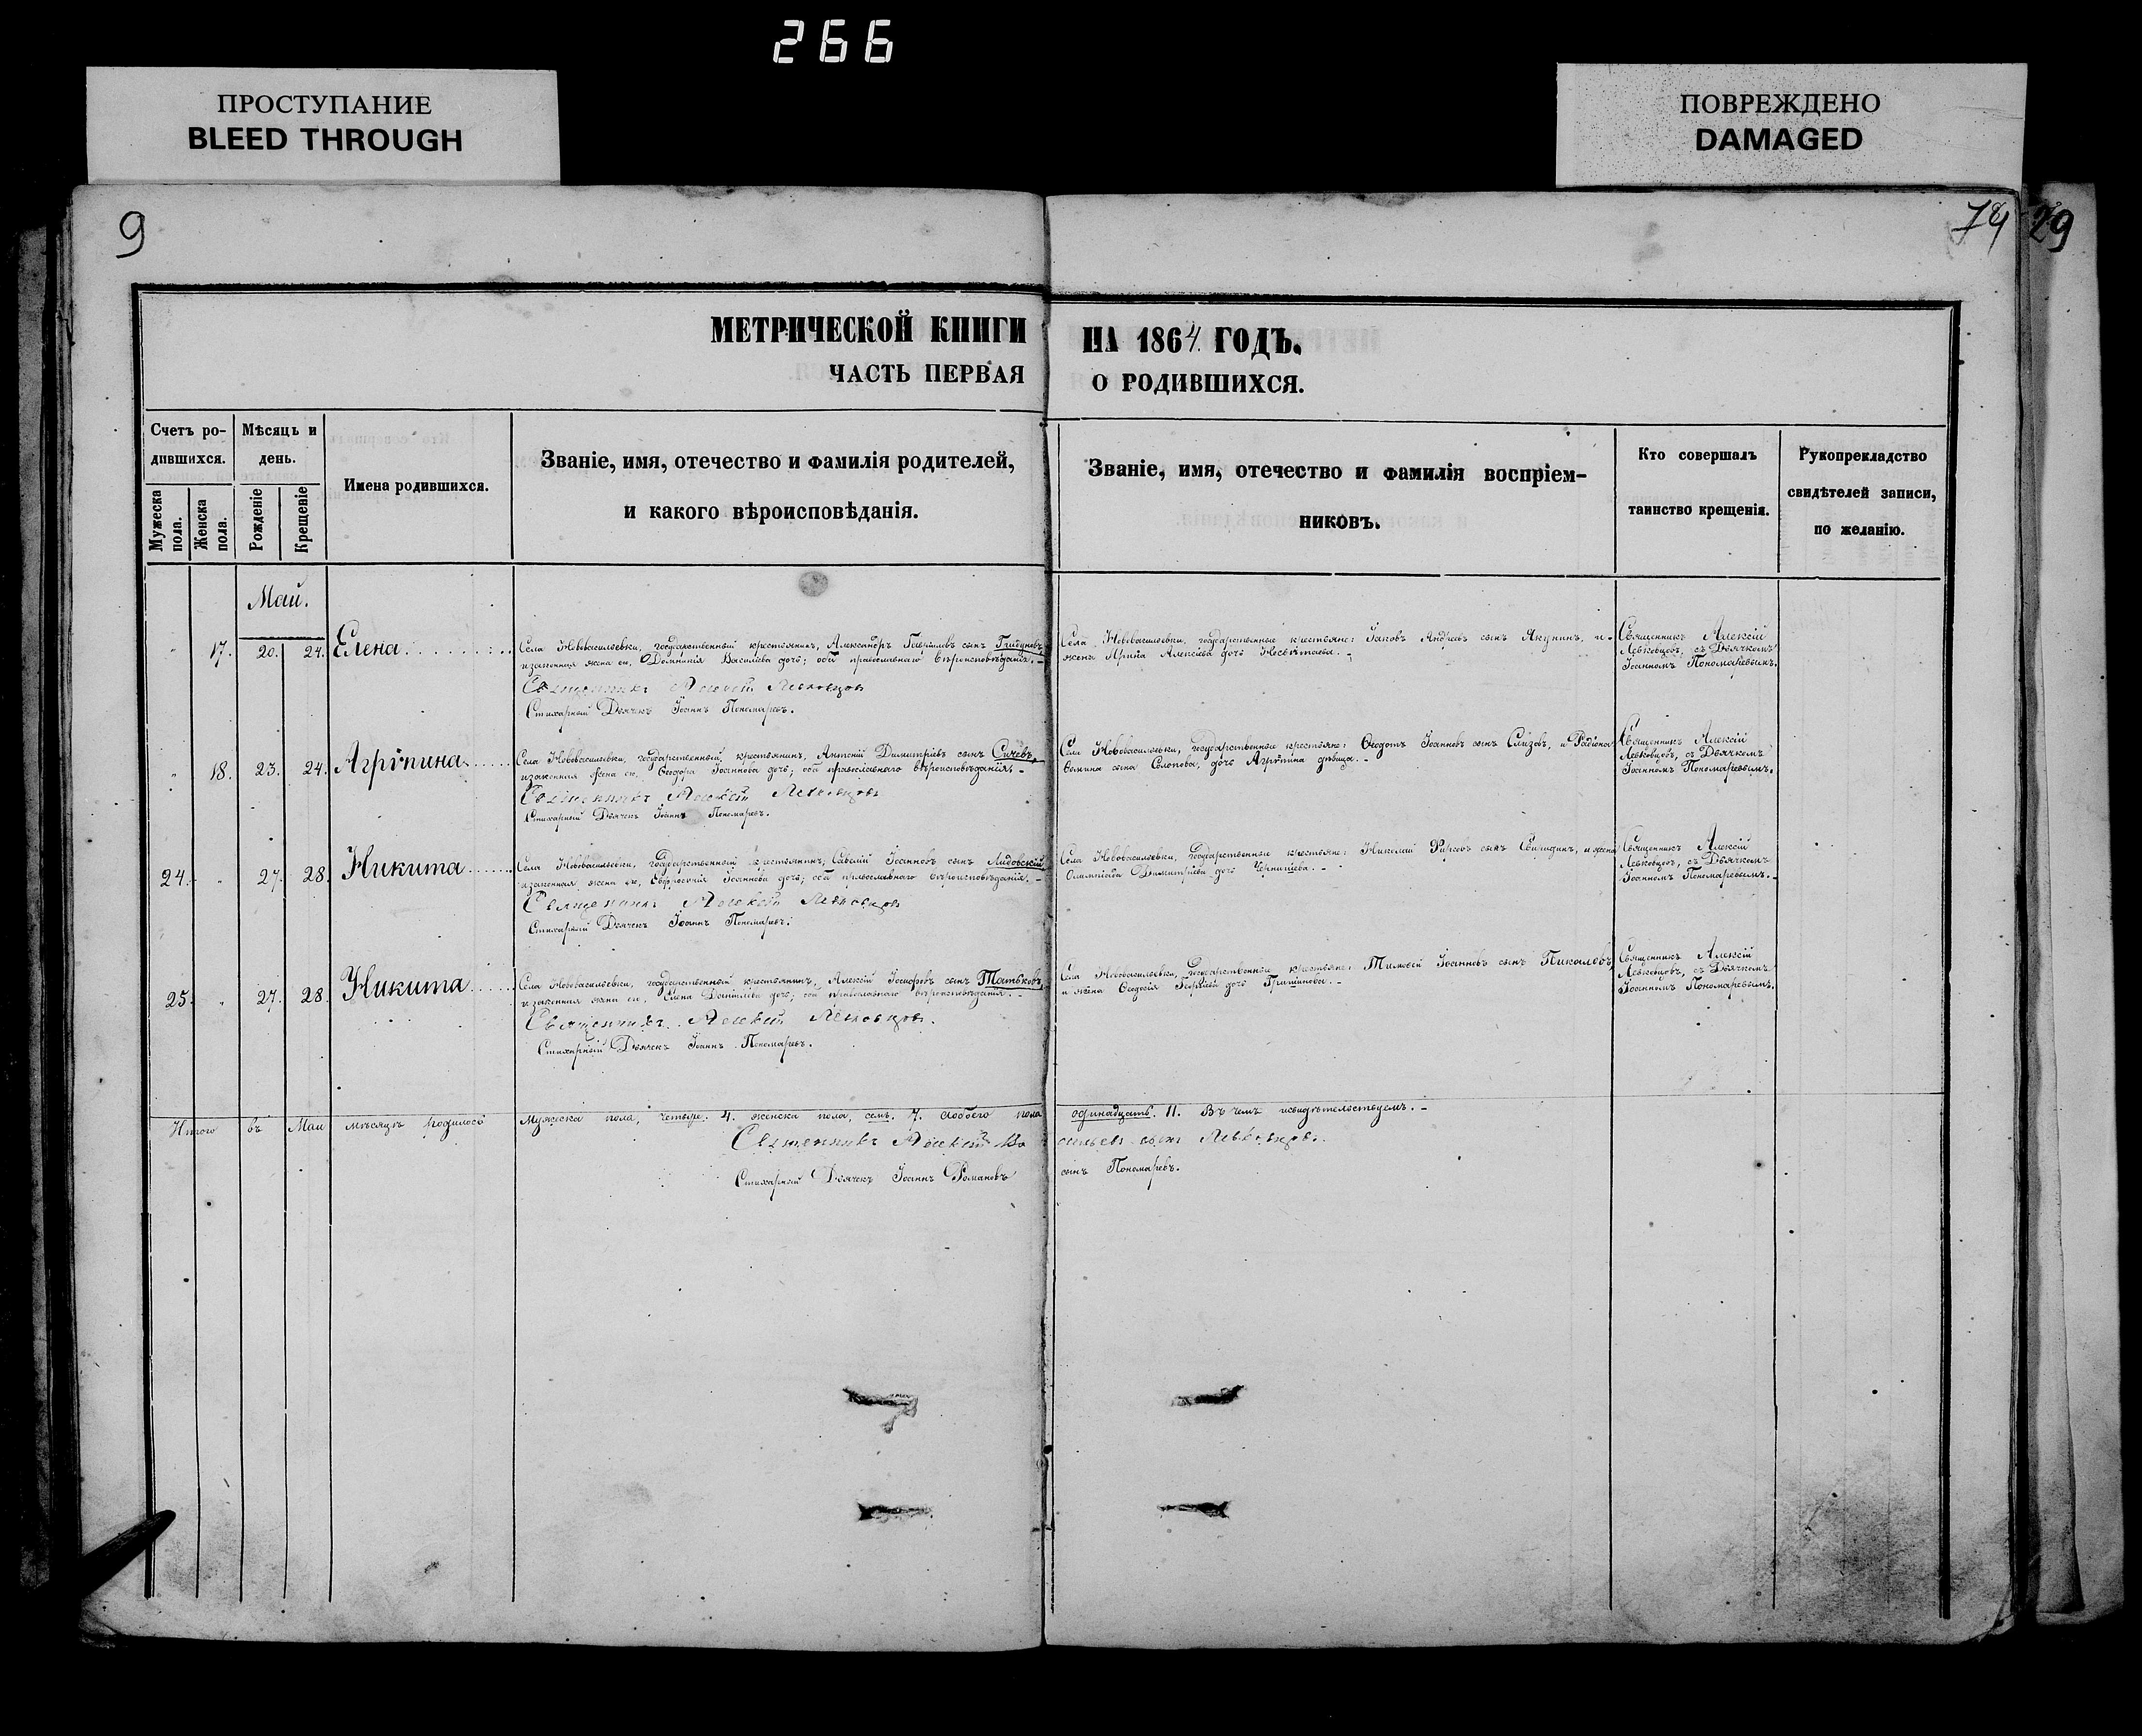 266
ПРОСТУПАНИЕ
BLEED THROUGH
ПОВРЕЖДЕНО
DAMAGED
9
74 29
МЕТРИЧЕСКОЙ КНИГИ НА 1864 ГОДЪ.
ЧАСТЬ ПЕРВАЯ О РОДИВШИХСЯ.
Счетъ ро-
дившихся.
Мужеска пола.
Женска пола.
Мѣсяцъ и
день.
Рожденіе
Крещеніе
Имена родившихся.
Званіе, имя, отечество и фамилія родителей,
и какого вѣроисповѣданія.
Званіе, имя, отечество и фамилія воспріем-
никовъ.
Кто совершалъ
таинство крещенія.
Рукоприкладство
свидѣтелей записи,
по желанію.
Май.
" 17. 20. 24. Елена
Села Нововасильевки, государственный крестьянинъ, Александръ Гавріиловъ сынъ
и законная жена его, Домникія Василіева дочь; оба православнаго вѣроисповѣданія.-
Священникъ Алексій Левковцовъ
Стихарный Дьячекъ Іоаннъ Пономаревъ.
Села Нововасильевки, государственные крестьяне: Іаковъ Андреевъ сынъ Якунинъ, и-
жена Ирина Алексіева дочь
Священникъ Алексій
Левковцовъ, съ Дьячкомъ
Іоанномъ Пономаревымъ.
" 18. 23. 24. Агріпина
Села Нововасильевки, государственный крестьянинъ, Антоній Димитріевъ сынъ Сычевъ,
и законная жена его, Ѳеодора Іоаннова дочь; оба православнаго вѣроисповѣданія.-
Священникъ Алексій Левковцовъ
Стихарный Дьячекъ Іоаннъ Пономаревъ.
Села Нововасильевки, государственные крестьяне: Ѳеодотъ Іоанновъ сынъ Слизовъ, и Родіона
Ѳомина сына Солопова, дочь Агріпина дѣвица.-
Священникъ Алексій
Левковцовъ, съ Дьячкомъ
Іоанномъ Пономаревымъ.
24. " 27. 28. Никита
Села Нововасильевки, государственный крестьянинъ, Савелій Іоанновъ сынъ Лидовскій
и законная жена его, Евфросинія Іоаннова дочь; оба православнаго вѣроисповѣданія.-
Священникъ Алексій Левковцовъ
Стихарный Дьячекъ Іоаннъ Пономаревъ.
Села Нововасильевки, государственные крестьяне: Николай Фирсовъ сынъ Свиридинъ, и жена
Олимпіада Димитріева дочь
Священникъ Алексій
Левковцовъ, съ Дьячкомъ
Іоанномъ Пономаревымъ.
25. " 27. 28. Никита
Села Нововасильевки, государственный крестьянинъ, Алексій Іосифовъ сынъ Татьковъ,
и законная жена его, Елена Даніилова дочь; оба православнаго вѣроисповѣданія.-
Священникъ Алексій Левковцовъ.
Стихарный Дьячекъ Іоаннъ Пономаревъ.
Села Нововасильевки, государственные крестьяне: Тимоѳей Іоанновъ сынъ Пикаловъ,
и жена Ѳеодосія Георгіева дочь
Священникъ Алексій
Левковцовъ, съ Дьячкомъ
Іоанномъ Пономаревымъ.
Итого въ Маи мѣсяцѣ родилось мужеска пола, четыре. 4. женска пола, семь. 7. Обоего пола одинадцать. 11. Въ чемъ и свидѣтельствуемъ.-
Священникъ Алексій Васильевъ сынъ Левковцовъ.
Стихарный Дьячекъ Іоаннъ Романовъ сынъ Пономаревъ.